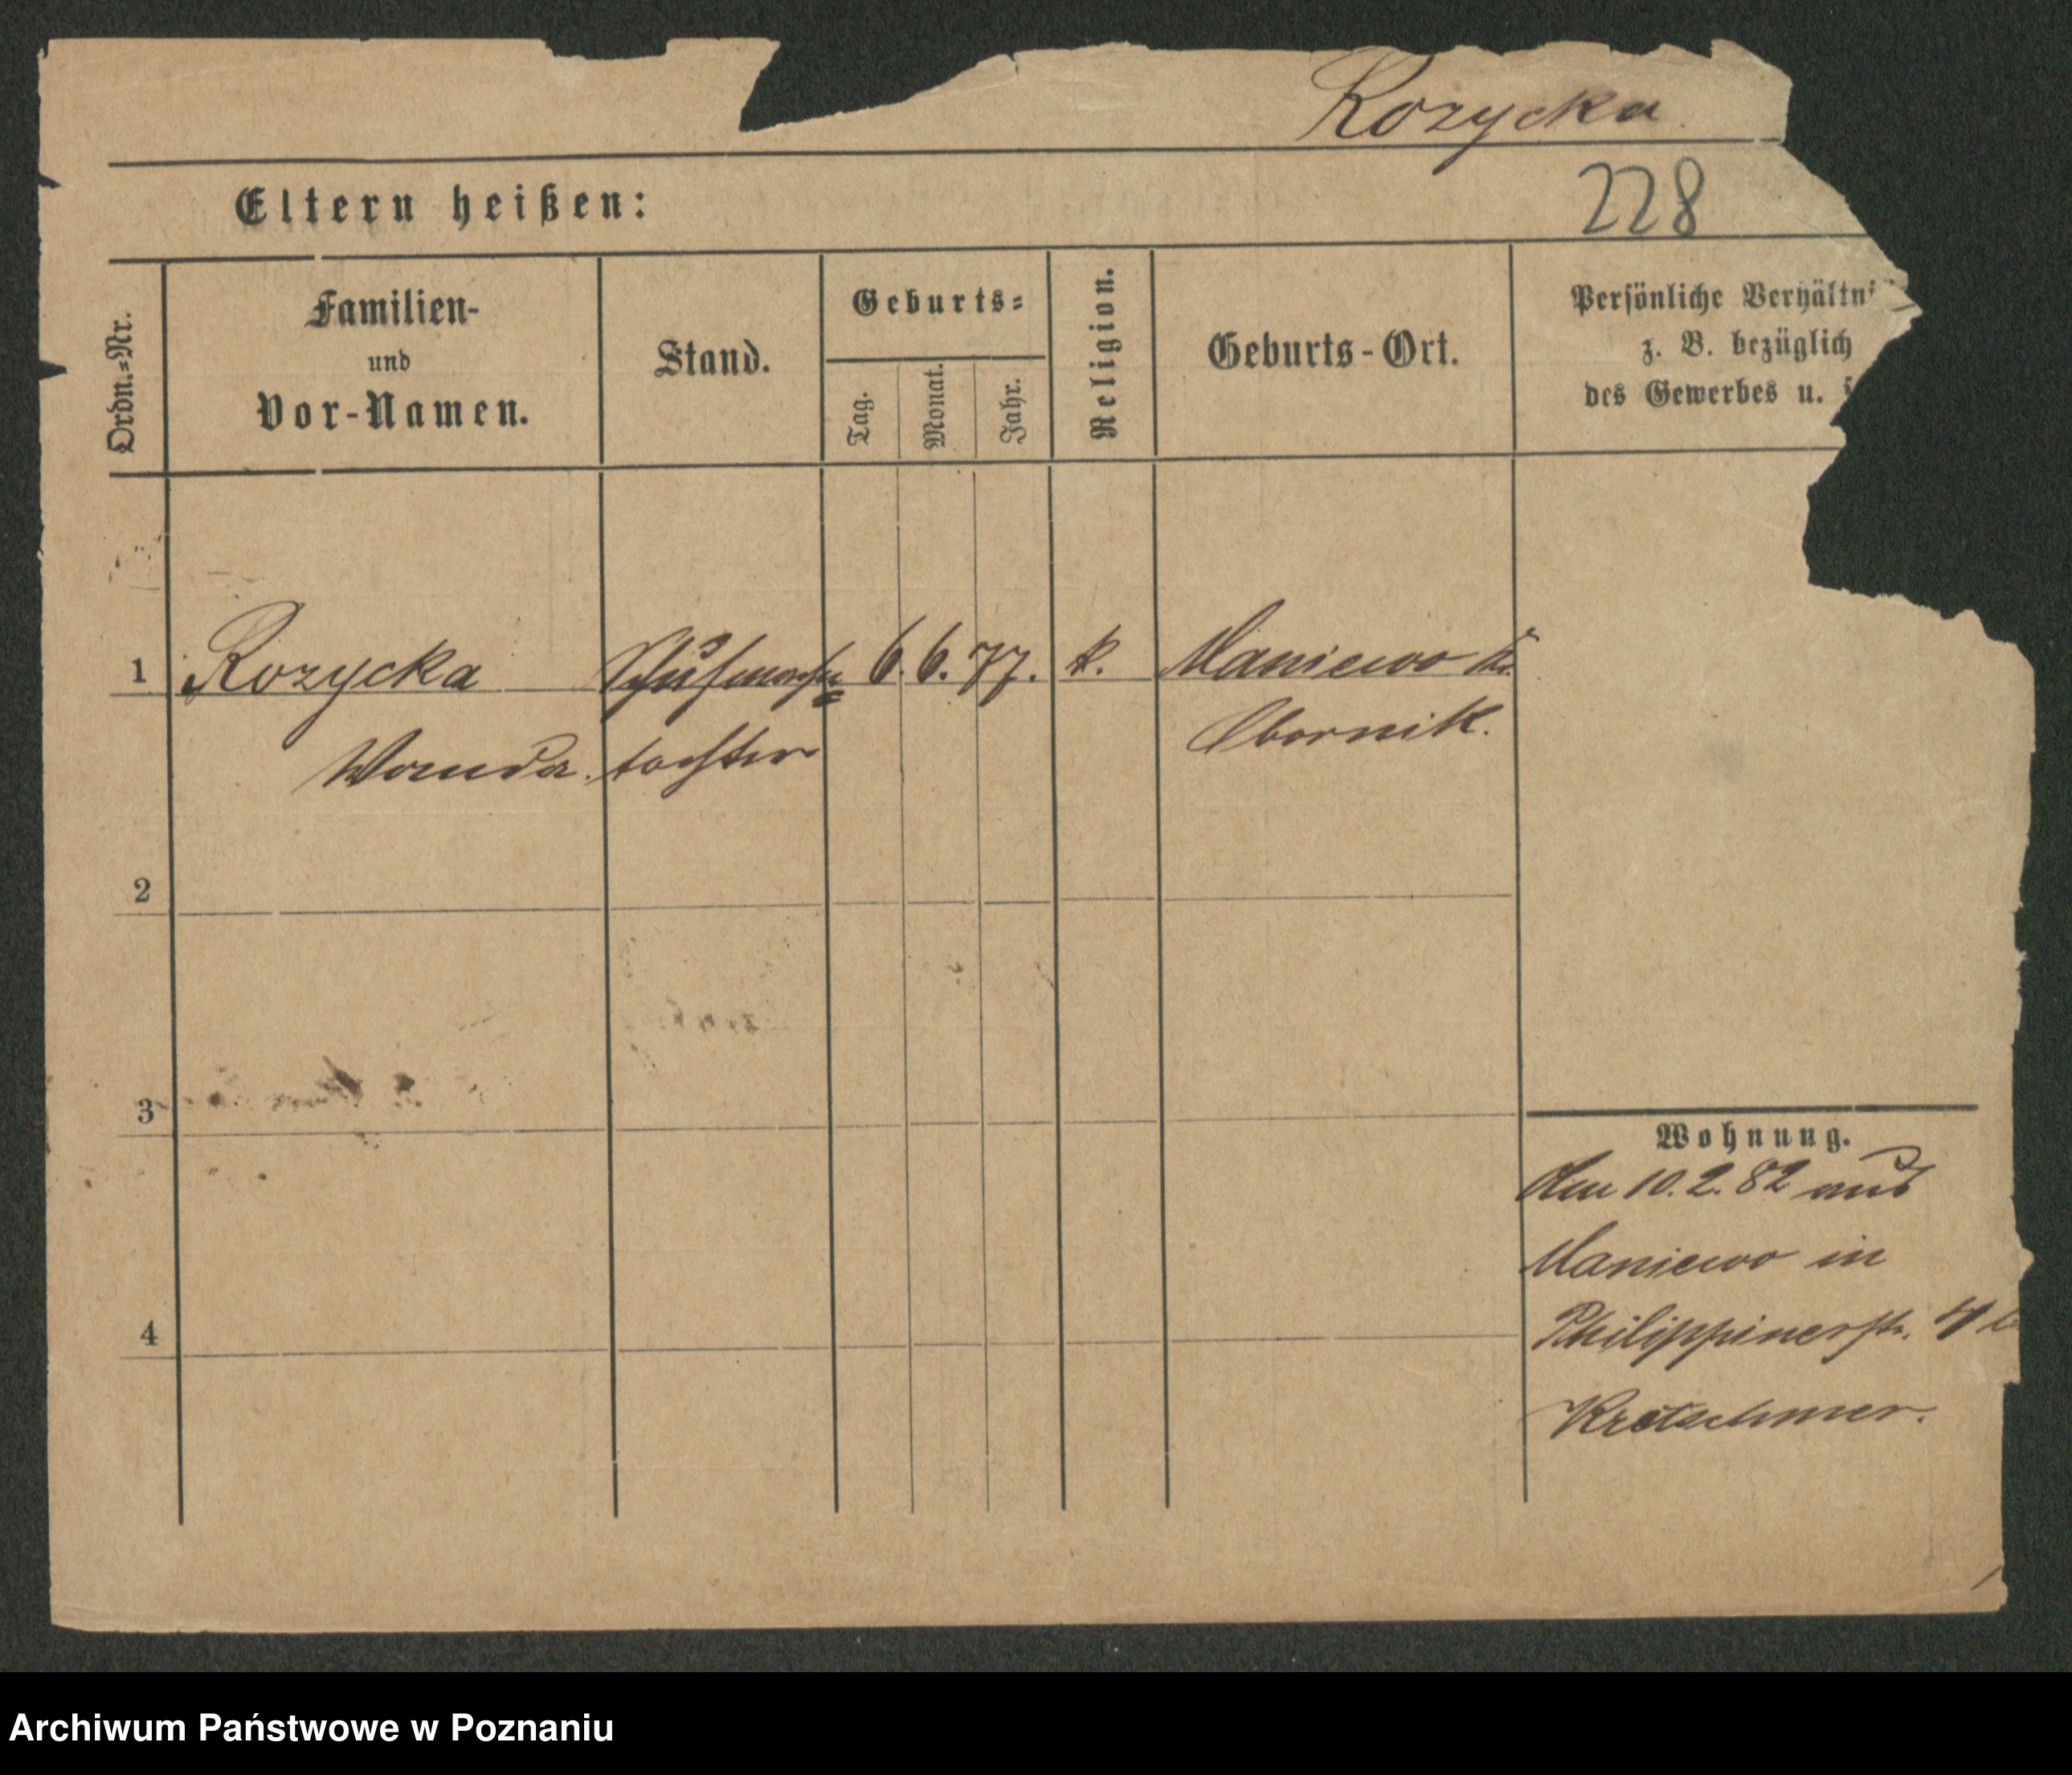 Rozycka
228
Eltern heißen:
Ordn.-Nr.
Familien-
und
Vor-Namen.
Stand.
Geburts-
Tag.
Monat.
Jahr.
Religion.
Geburts-Ort.
Persönliche Verhältni
z. B. bezüglich
des Gewerbes u.
1 Rozycka Schuhmacher= 6. 6. 77. k. Maniewo Kr.
Wanda. tochter Obornik.
2
3
4
Wohnung.
Am 10.2.82 aus
Maniewo in
Philippinerstr. 4
Kretschmer.
Archiwum Państwowe w Poznaniu